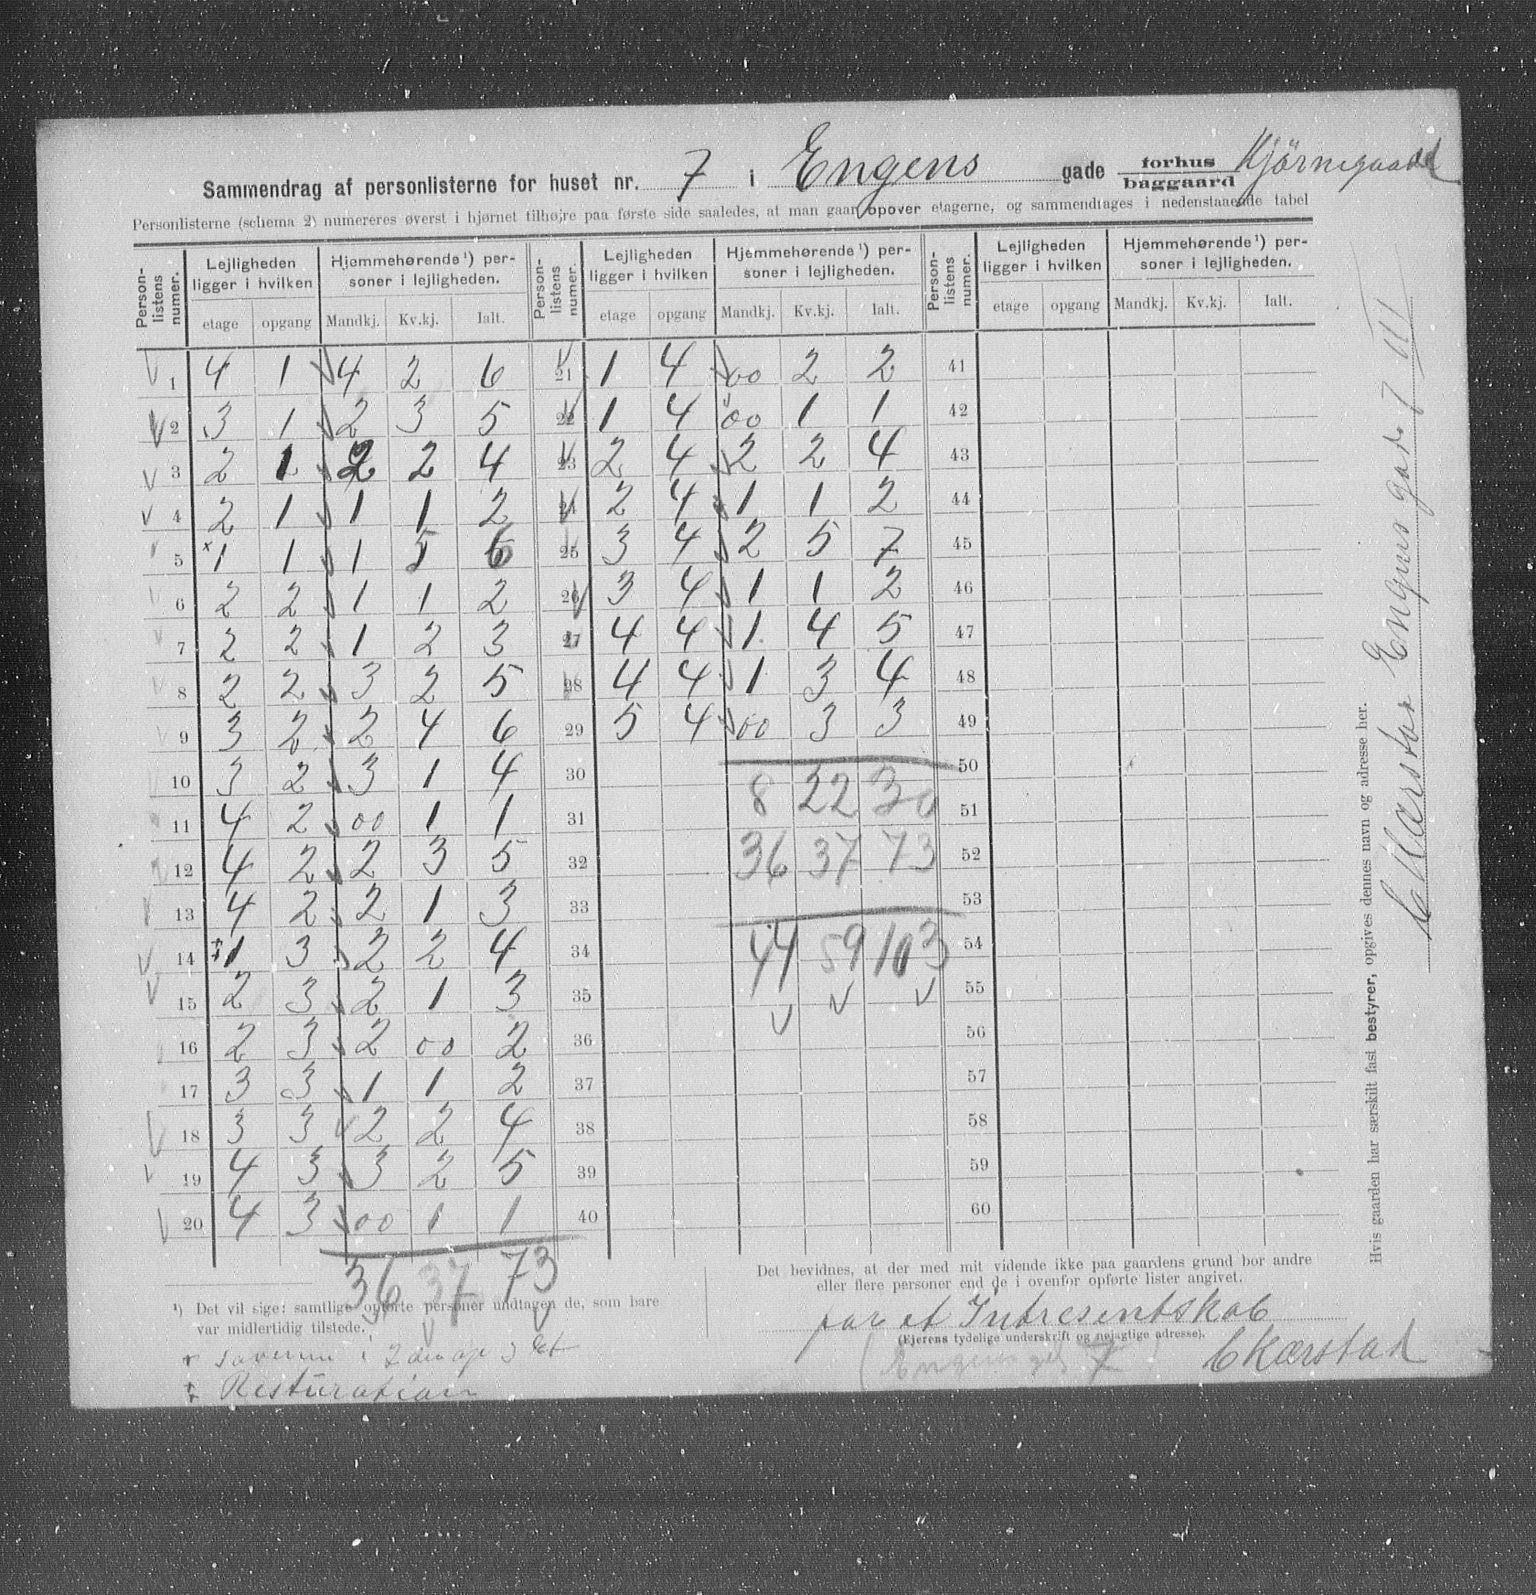 Sammendrag af personlisterne for huset nr. 7 i Engens gade forhus baggaard Hjörnegaard
Personlisterne (schema 2) numereres øverst i hjørnet tilhøjre paa første side saaledes, at man gaar opover etagerne, og sammendrages i nedenstaaende tabel
Person-listens numer. Lejligheden ligger i hvilken Hjemmehørende ¹) personer i lejligheden. Person-listens numer. Lejligheden ligger i hvilken Hjemmehørende ¹) personer i lejligheden. Person-listens numer. Lejligheden ligger i hvilken Hjemmehørende ¹) personer i lejligheden.
etage opgang Mandkj. Kv.kj. Ialt. etage opgang Mandkj. Kv.kj. Ialt. etage opgang Mandkj. Kv.kj. Ialt.
1 4 1 4 2 6 21 1 4 00 2 2 41
2 3 1 2 3 5 22 1 4 00 1 1 42
3 2 1 2 2 4 23 2 4 2 2 4 43
4 2 1 1 1 2 24 2 4 1 1 2 44
5 x1 1 1 5 6 25 3 4 2 5 7 45
6 2 2 1 1 2 26 3 4 1 1 2 46
7 2 2 1 2 3 27 4 4 1 4 5 47
8 2 2 3 2 5 28 4 4 1 3 4 48
9 3 2 2 4 6 29 5 4 00 3 3 49
10 3 2 3 1 4 30 50
11 4 2 00 1 1 31 8 22 30 51
12 4 2 2 3 5 32 36 37 73 52
13 4 2 2 1 3 33 53
14 ‡1 3 2 2 4 34 44 59 103 54
15 2 3 2 1 3 35 55
16 2 3 2 00 2 36 56
17 3 3 1 1 2 37 57
18 3 3 2 2 4 38 58
19 4 3 3 2 5 39 59
20 4 3 00 1 1 40 60
36 37 73
¹) Det vil sige: samtlige opførte personer undtagen de, som bare
var midlertidig tilstede.
‡ Resturation
Det bevidnes, at der med mit vidende ikke paa gaardens grund bor andre
eller flere personer end de i ovenfor opførte lister angivet.
for et Intresentskab
(Ejerens tydelige underskrift og nøjagtige adresse).
CKærstad
Engens gd 7
Hvis gaarden har særskilt fast bestyrer, opgives dennes navn og adresse her.
Kærstad Engens gade 7 III